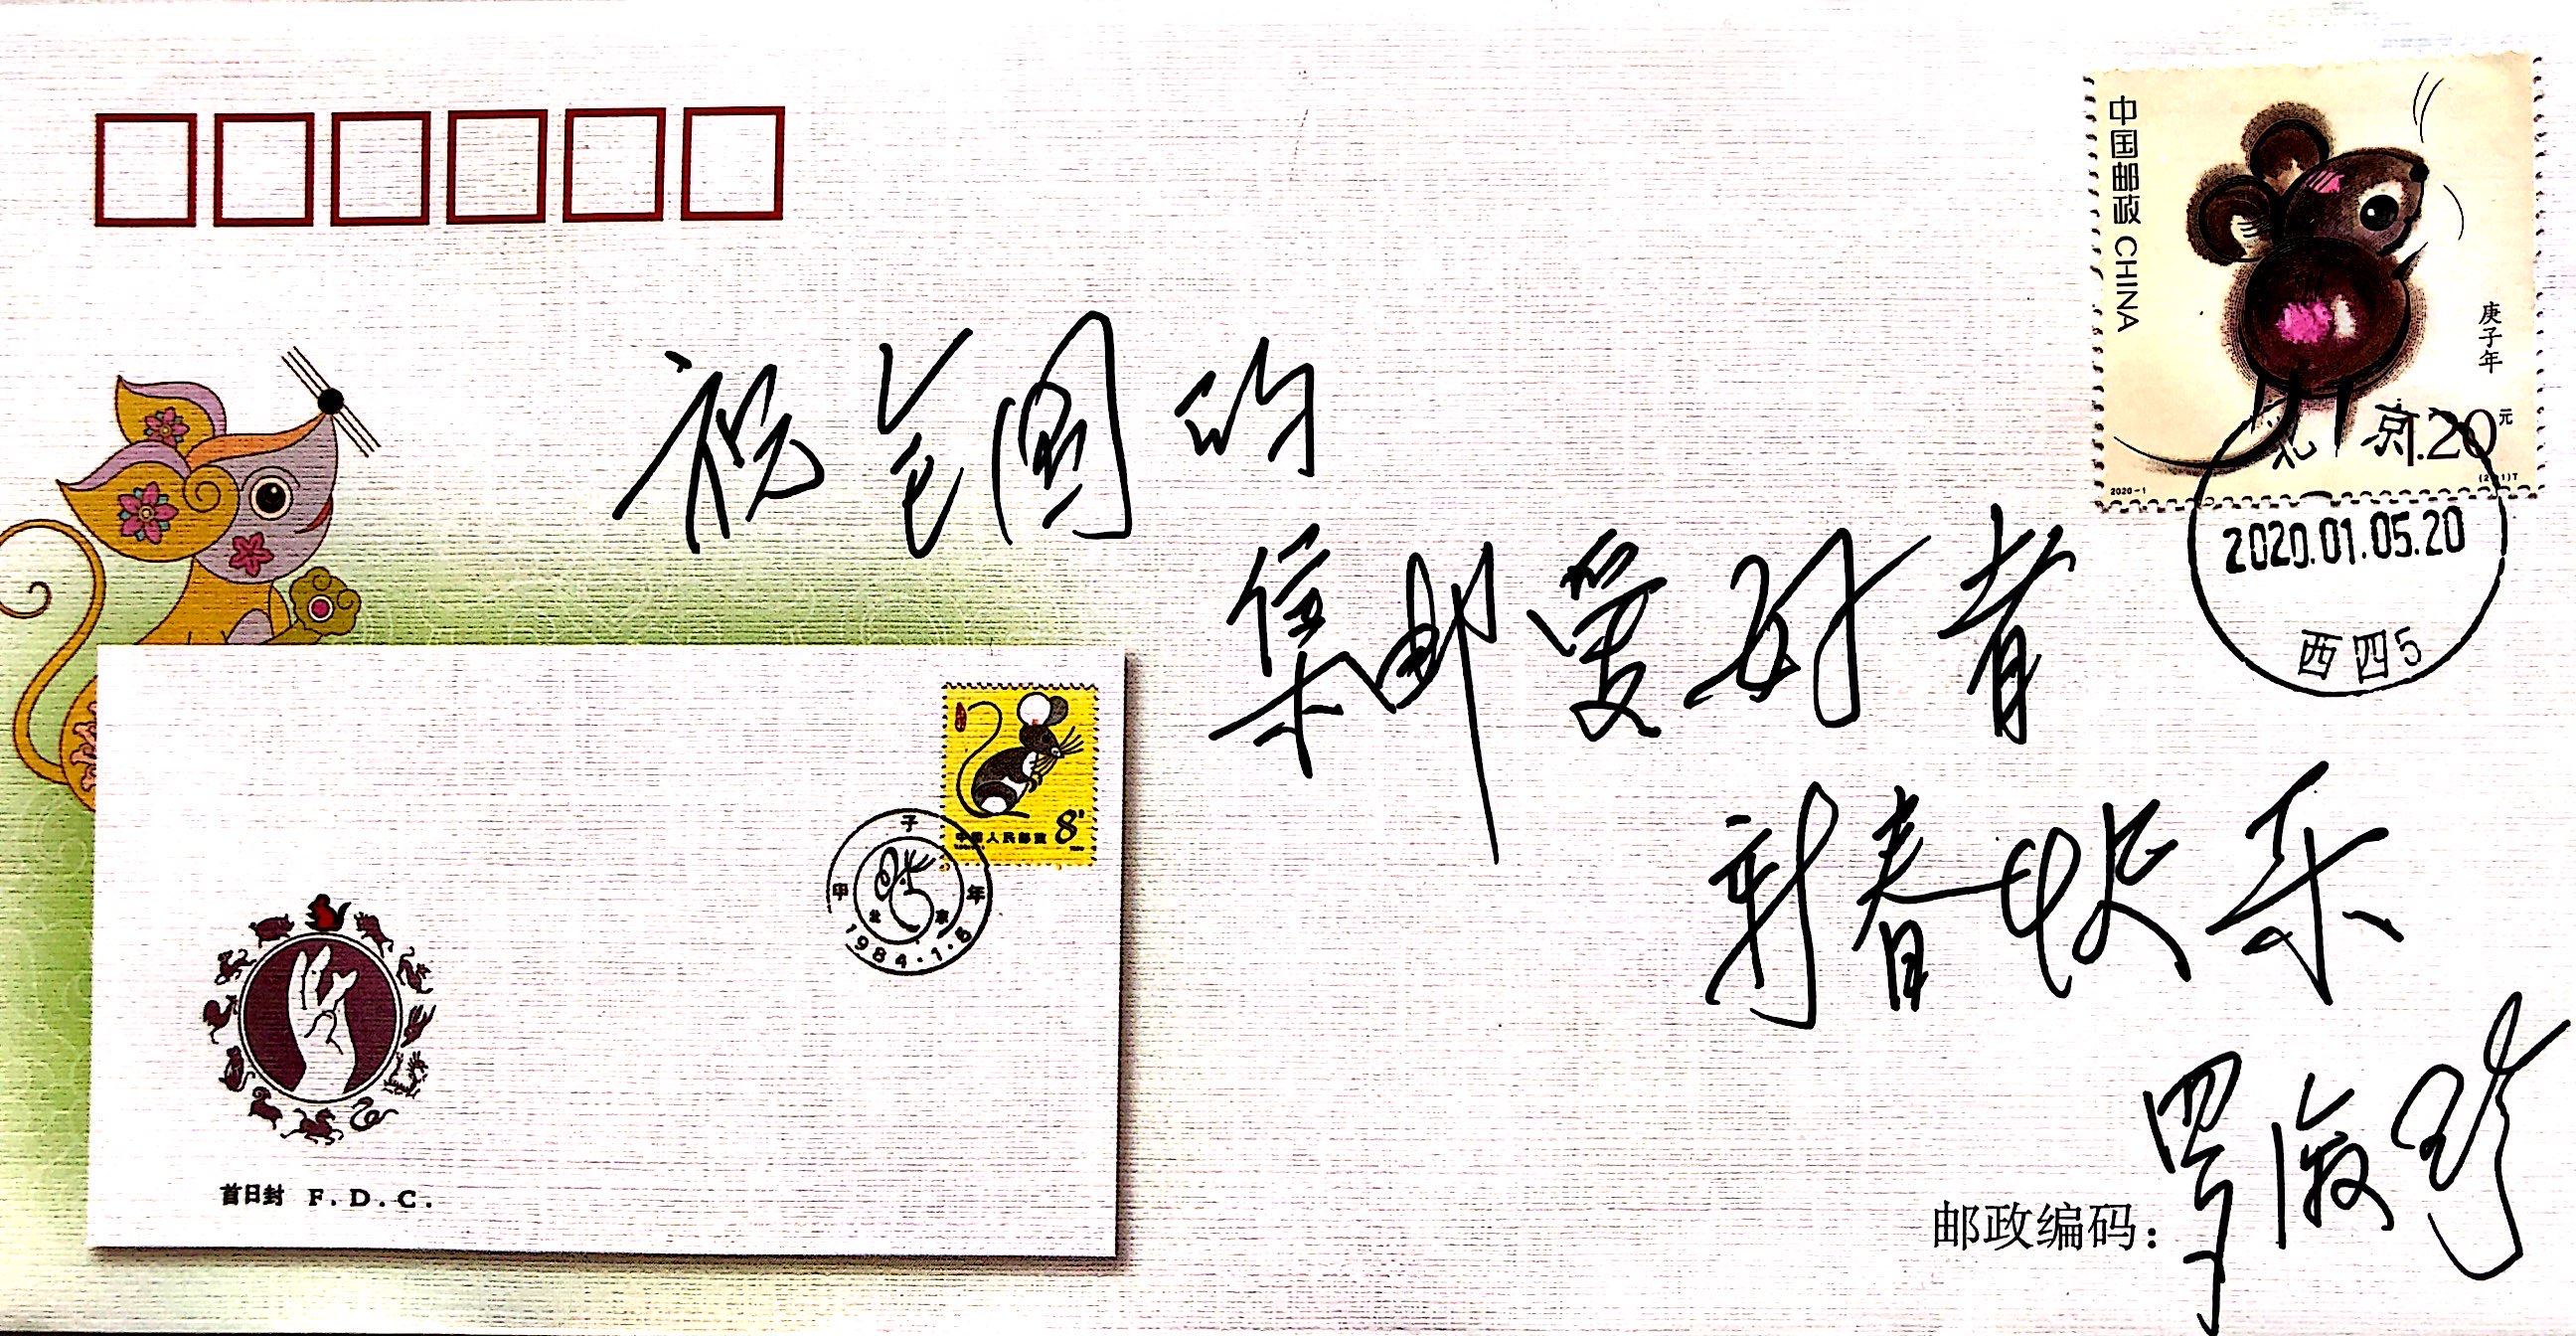 中国邮政 CHINA
庚子年
1.20元
2020-1
(2-1)T
北京
2020.01.05.20
西四5
祝全国的
集邮爱好者
新春快乐
8
中国人民邮政
甲子年
北京
1984.1.5
首日封 F.D.C.
邮政编码: